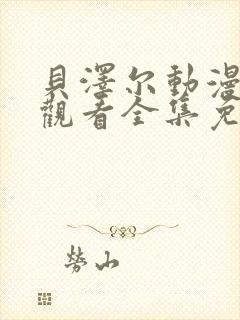 貝澤尔動漫
觀看全集免
勞山